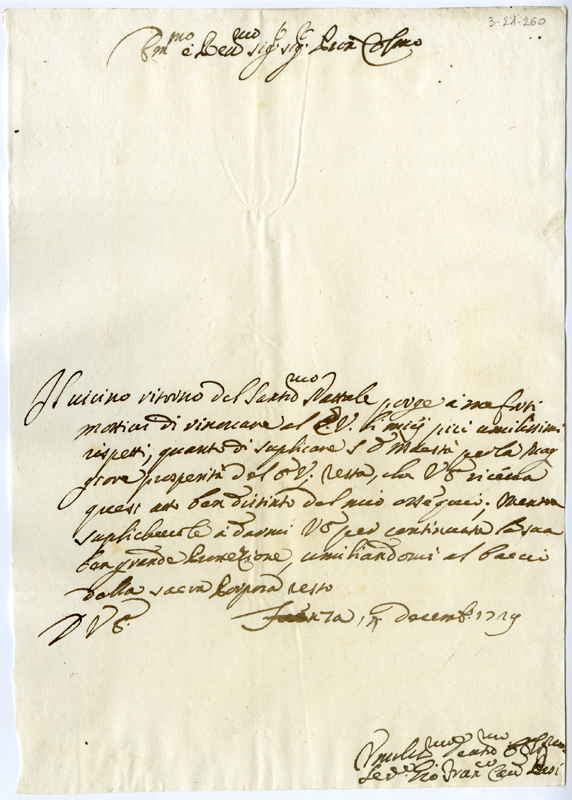 3-21-260
Em.mo e Rev.mo Sig. Sig. Pron Colmo
Il vicino ritorno del Santis.mo Nattale porge à me forti
mottivi di rinovare al E.V. li miei più umilissimi
rispetti, quanto di suplicare S. D. Maestà per la mag
giore prosperità del E.V. resta, che V.E. riceva
quest atto ben distinto del mio ossequio; mentre
suplichevole à darmi V.E. per continuata la sua
ben grande Prottezione, umiliandomi al baccio
della sacra Porpora resto
D V.E. 17 decemb. 1729
Umilis.mo
Gio Fran.co